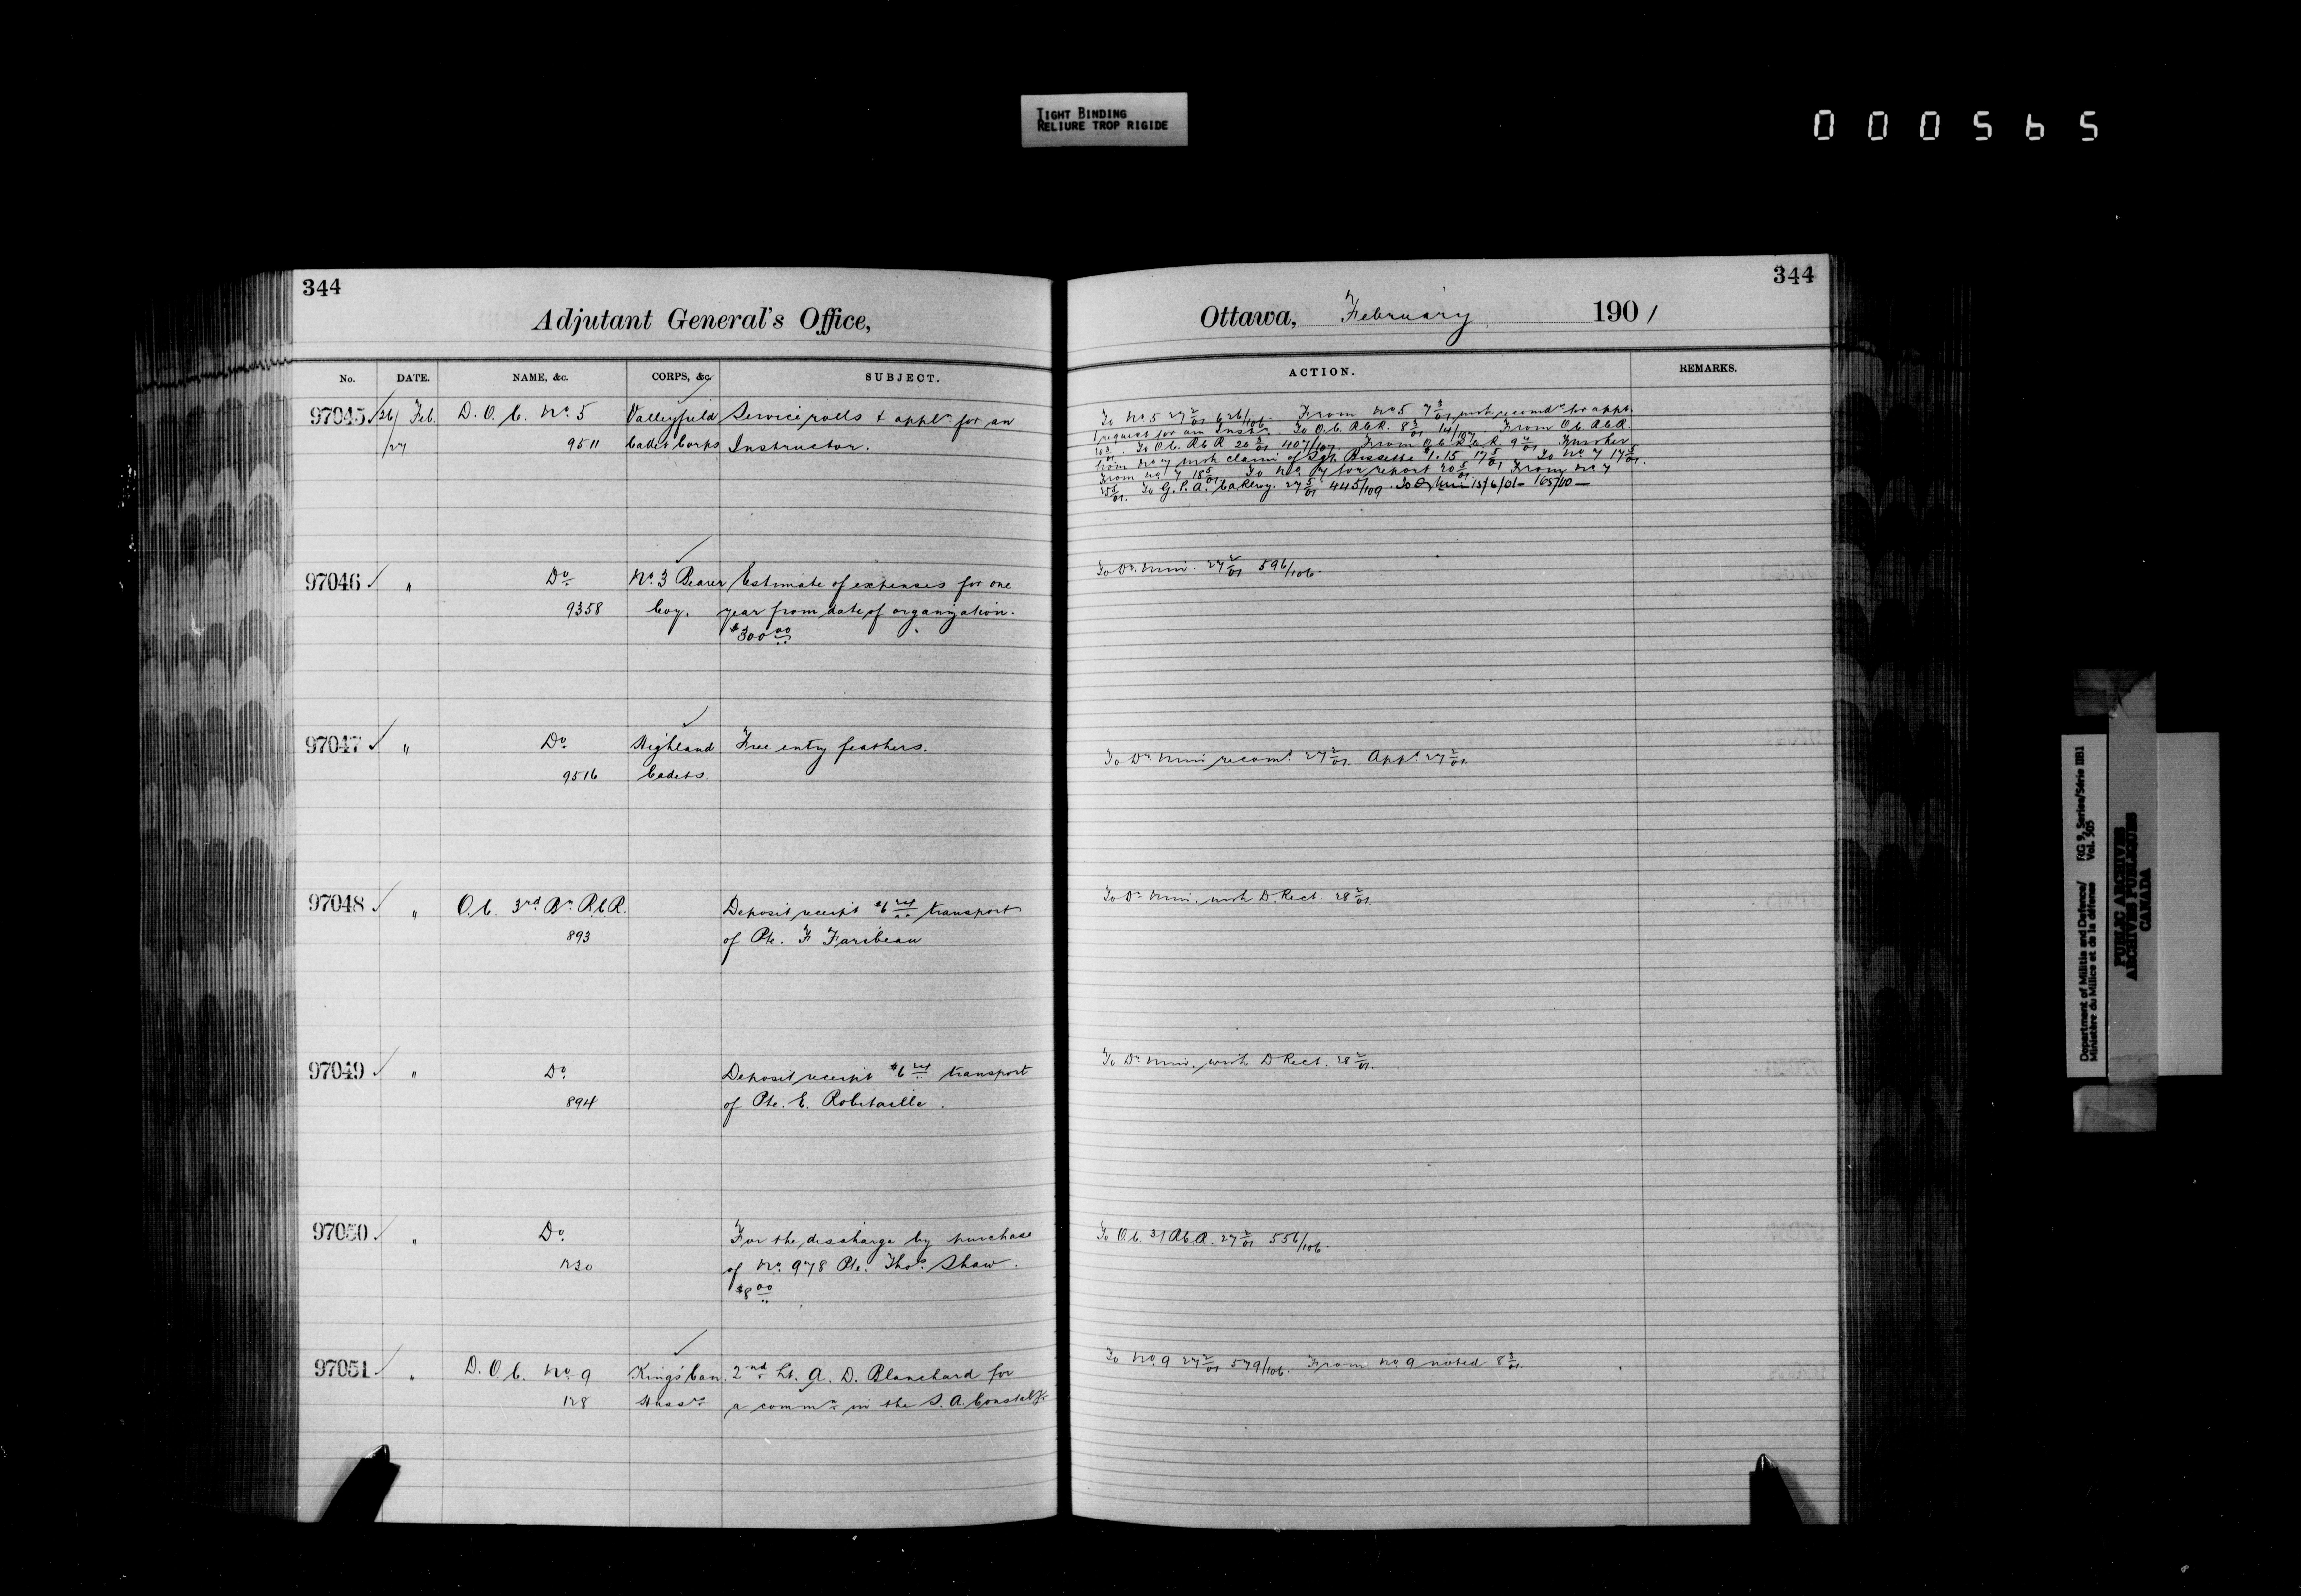 TIGHT BINDING
RELIURE TROP RIGIDE
000565
344
Adjutant General's Office,
No. DATE. NAME, &c. CORPS, &c. SUBJECT.
97045 26/ Feb. D. O. C. No. 5 Valleyfield Service rolls & appln for an
/27 9511 Cadet Corps Instructor.
97046 " Do No. 3 Bearer Estimate of expenses for one
9358 Coy. year from date of organization.
$300 00
97047 " Do Highland Free entry feathers.
9516 Cadets.
97048 " O.C. 3rd Bn R.C.R. Deposit receipt $6 transport
893 of Pte. F Faribeau
97049 " Do Deposit receipt $6 transport
894 of Pte. E. Robitaille.
97050 " Do For the discharge by purchase
of No. 978 Pte. Thos. Shaw.
$8 00
97051 " D. O. C. No 9 Kings Can. 2nd Lt. A. D. Blanchard for
128 Hussrs a commn in the S. A. Constably
344
Ottawa, February 1901
ACTION. REMARKS.
To No. 5 27 2/01 626/106. From No 5 7 3/01 with recomdn for appt.
request for an Instr. To O.C. R.C.R. 8 3/01 14/107. From O.C. R.C.R.
To O.C. R.C.R 20 3/01 407/107 From O.C. R.C.R. 9 4/01 Further
from No 7 with claim of Sgt. Bissette $1.15 17 5/01 To No 7 17 5/01.
From No 7 18 5/01 To No. 7 for report 20 5/01 From No 7
25 5/01. To G.P.A. Ca Rlwy. 27 5/01 445/109. To 13/6/01 - 165/110 -
To Dr. Mini. 27 2/01 596/106.
To Dr. Mini recomd. 27 2/01. Appd. 27 2/01.
To Dr. Mini. with D. Rect. 28 2/01.
To Dr. Mini. with D Rect. 28 2/01.
To O.C. 3/ R.C.R. 27 2/01 556/106.
To No 9 27 2/01 579/106. From No 9 noted 8 3/01.
Department of Militia and Defence/ RG 9, Series/Série IIB1
Ministère du Milice et de la défense Vol. 505
PUBLIC ARCHIVES
ARCHIVES PUBLIQUES
CANADA